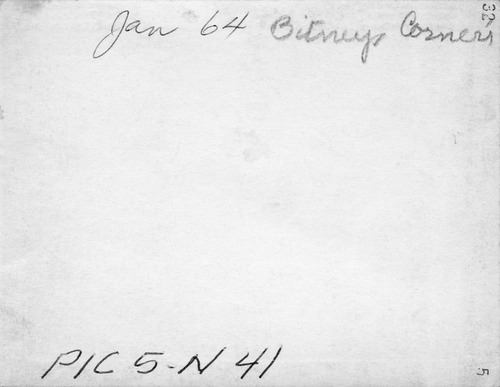 Jan 64 Bitneys Corners
32
PIC 5-N 41
5